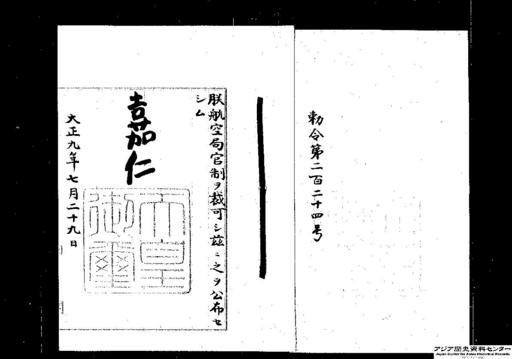 勅令第二百二十四号
朕航空局官制ヲ裁可シ茲ニ之ヲ公布セ
シム
嘉仁
天皇御璽
大正九年七月二十九日
アジア歴史資料センター
Japan Center for Asian Historical Records